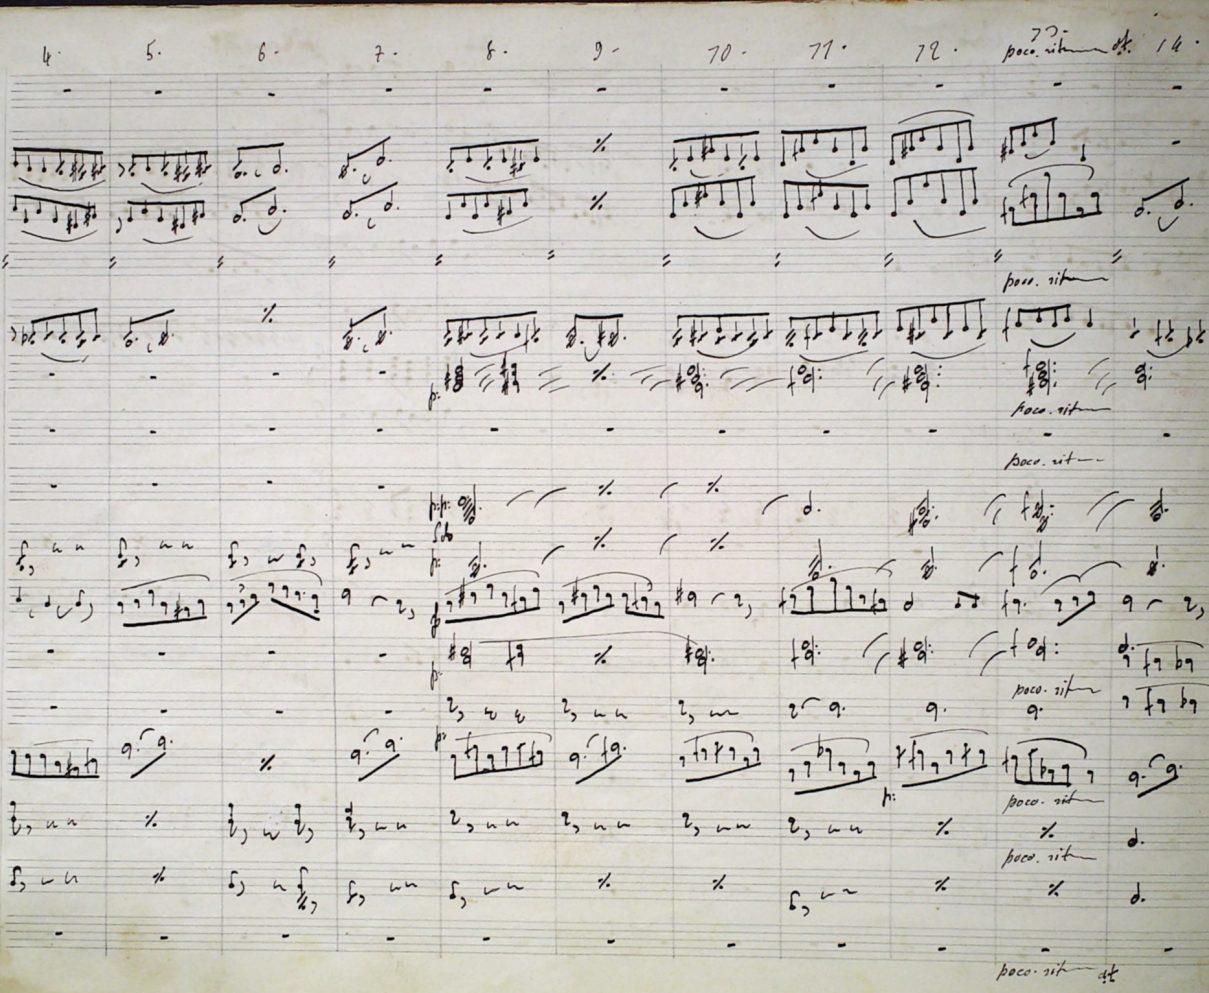 4. 5. 6. 7. 8. 9- 10. 11. 12. 13. 14.
poco. rit
poco. rit
p:
poco. rit
poco. rit
p:p:
p:
p:
poco. rit
p:
p:
poco. rit
poco. rit
poco. rit